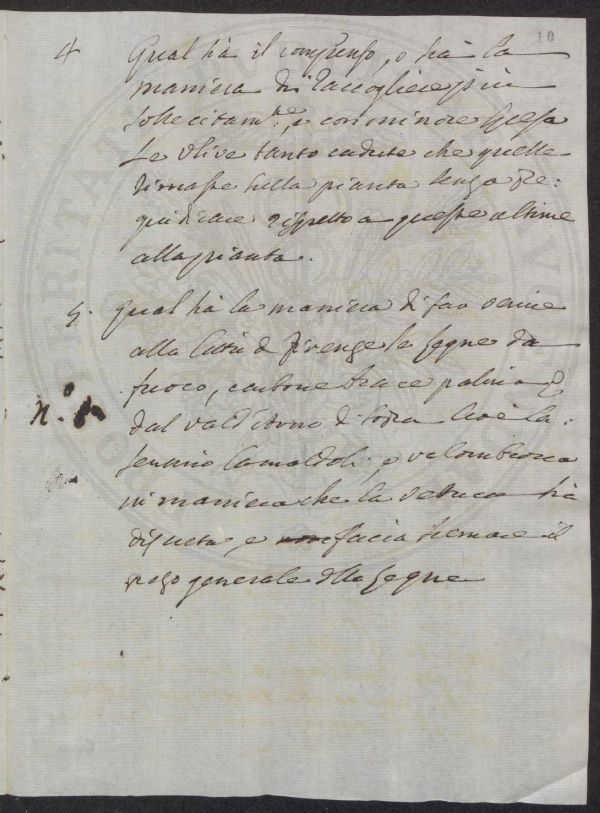 10
4 Qual sia il congegno, o sia la
maniera di raccogliere più
sollecitam.te, e con minore spesa
Le Olive tanto cadute che quelle
rimaste sulla pianta senza pre:
giudicare rispetto a queste ultime
alla pianta.
5. Qual sia la maniera di far venire
alla Città di Firenze le legne da
fuoco, carbone brace palina
dal Valdarno di sopra Cioè Ca:
sentino Camaldoli, e Valombrosa
in maniera che la vettura sia
discreta e facia scemare il
prezo generale della legne
n.